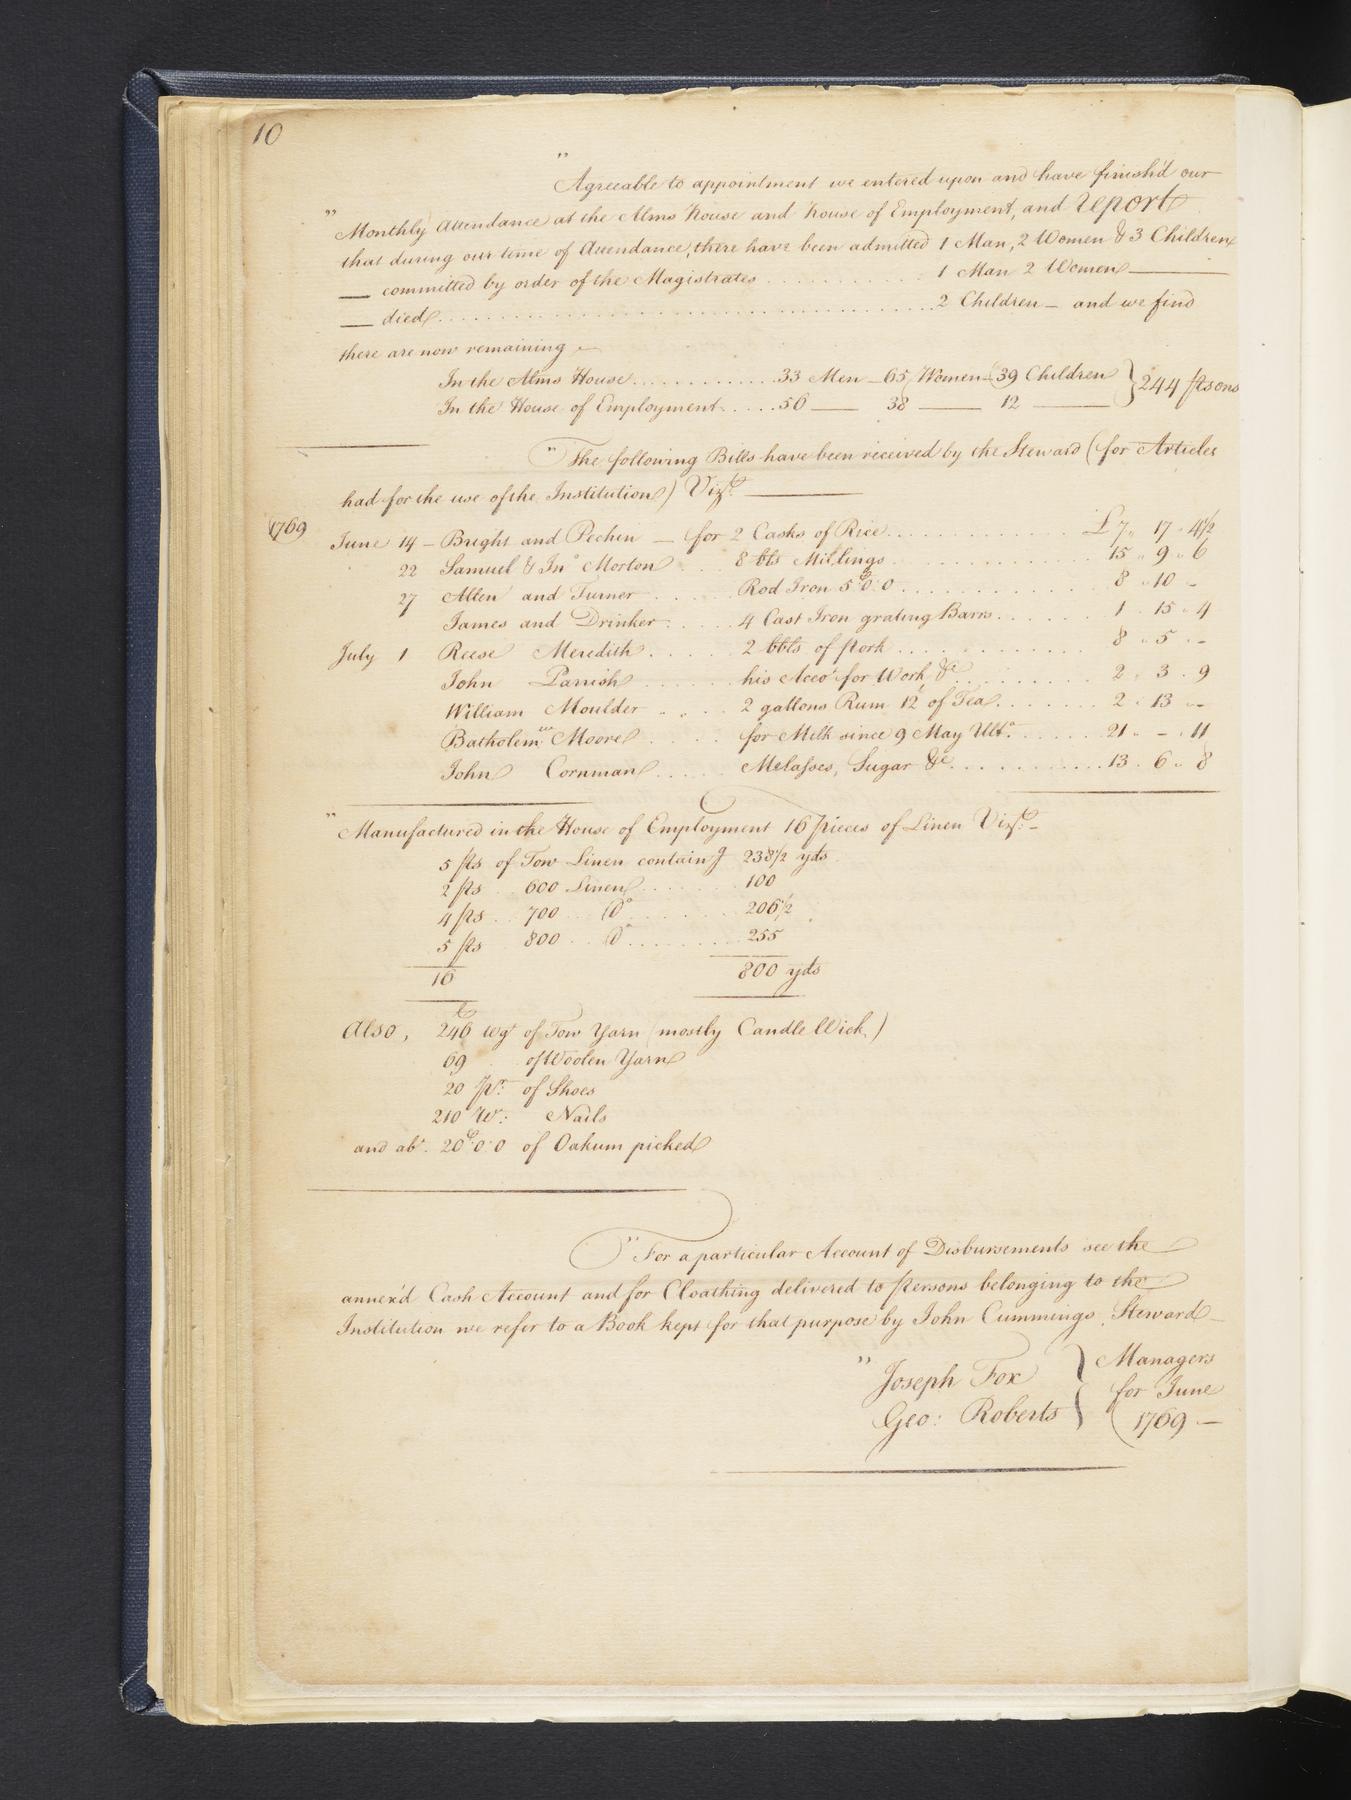 10
" Agreeable to appointment we entered upon and have finish'd our
" Monthly Attendance at the Alms House and House of Employment, and report
that during our time of Attendance, there have been admitted 1 Man, 2 Women & 3 Children
— committed by order of the Magistrates . . . . . . . . . . . 1 Man 2 Women —
— died . . . . . . . . . . . . . . . . . . . . . . . . . . . . . . . 2 Children — and we find
there are now remaining —
In the Alms House . . . . . . . . . . . . . 33 Men — 65 Women — 39 Children } 244 Persons
In the House of Employment . . . . . 56 — 38 — 12 —
" The following Bills have been received by the Steward (for Articles
had for the use of the Institution) Vizt. —
1769 June 14 — Bright and Pechin — for 2 Casks of Rice . . . . . . . . . . . £7 " 17 " 4½
22 Samuel & Jno. Morton . . . . 8 bls Midlings . . . . . . . . . . . . 15 " 9 " 6
27 Allen and Turner . . . . . . Rod Iron 5C:0:0 . . . . . . . . . . . . 8 " 10 " -
James and Drinker . . . . . 4 Cast Iron grating Barrs . . . . . . . 1 " 15 " 4
July 1 Reese Meredith . . . . . 2 bbls of Pork . . . . . . . . . . . . 8 " 5 " -
John Parrish . . . . . . his Accot. for Work &c . . . . . . . . . . 2 " 3 " 9
William Moulder . . . . . 2 gallons Rum 12lb of Tea . . . . . . . 2 " 13 " -
Batholemw. Moore . . . . . for Milk since 9 May Ulto. . . . . . . 21 " - " 11
John Cornman . . . . . Melasses, Sugar &c . . . . . . . . . . . 13 " 6 " 8
" Manufactured in the House of Employment 16 pieces of Linen Vizt. —
5 ps of Tow Linen containg 238½ yds
2 ps . . 600 Linen . . . . . . . 100
4 ps . . 700 . . Do . . . . . . . 206½
5 ps . . 800 . . Do . . . . . . . 255
16 800 yds
Also, 246 lb wgt of Tow Yarn (mostly Candle Wick)
69 of Woolen Yarn
20 Pr. of Shoes
210 W: Nails
and abt. 20C:0:0 of Oakum picked
" For a particular Account of Disbursements see the
annex'd Cash Account and for Cloathing delivered to Persons belonging to the
Institution we refer to a Book kept for that purpose by John Cummings, Steward —
" Joseph Fox } Managers
Geo: Roberts } for June
1769 —